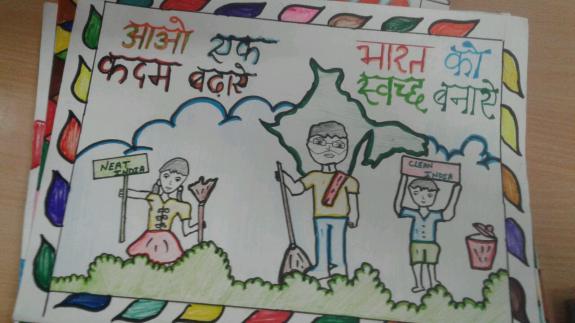 आओ एक
कदम बढ़ाऐ
भारत को
स्वच्छ बनाऐ
NEAT
INDIA
CLEAN
INDIA